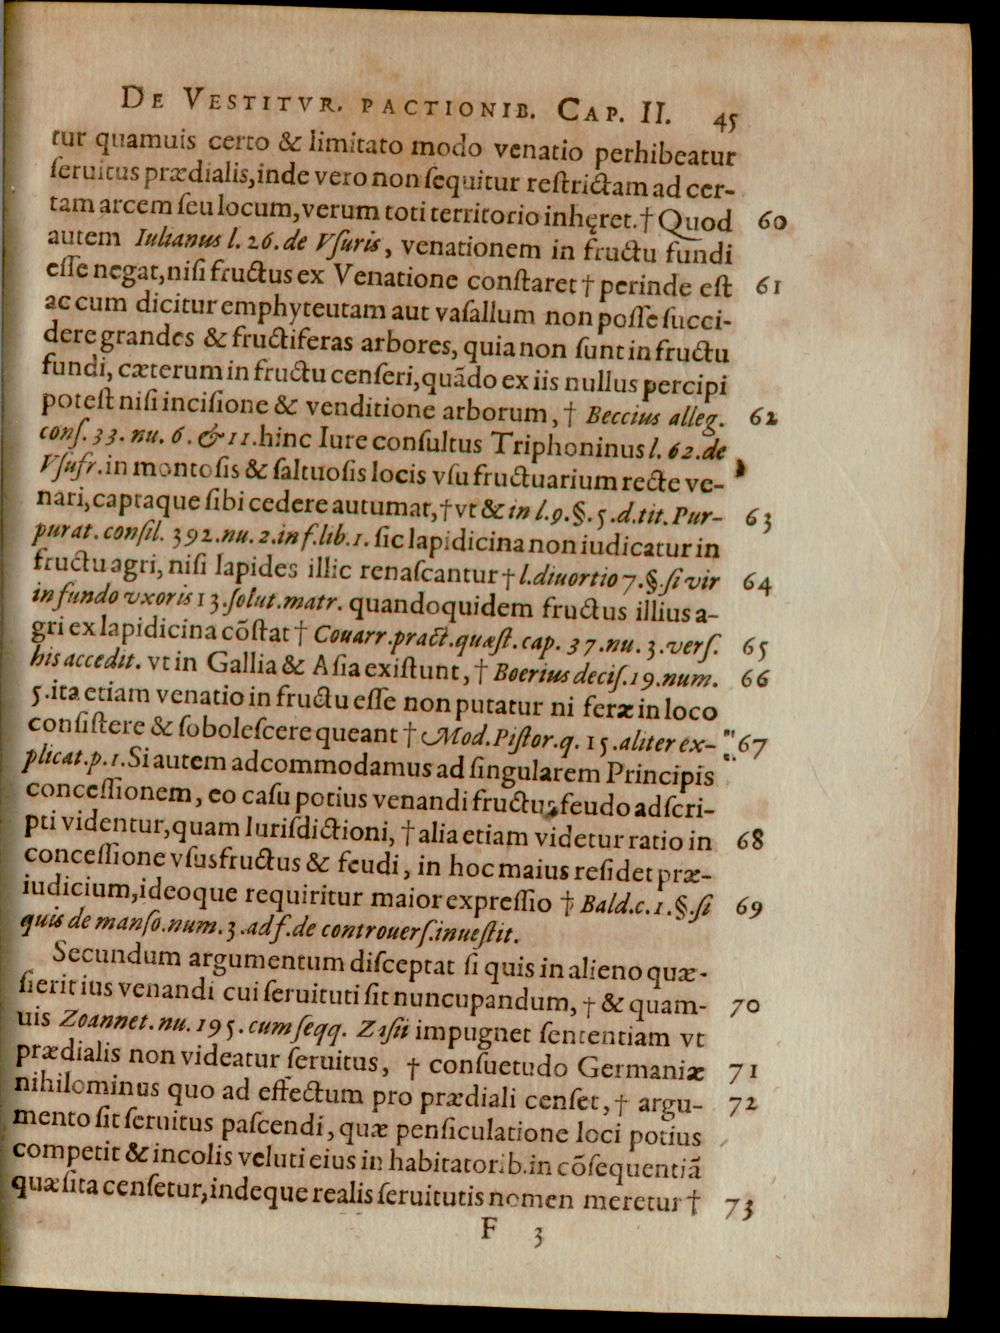 DE VESTITVR. PACTIONIB. CAP. II. 45
tur quamuis certo & limitato modo venatio perhibeatur
ſeruitus prædialis, inde vero non ſequitur reſtrictam ad cer-
tam arcem ſeu locum, verum toti territorio inhęret. † Quod 60
autem Iulianus l. 26. de Vſuris, venationem in fructu fundi
eſſe negat, niſi fructus ex Venatione conſtaret † perinde eſt 61
ac cum dicitur emphyteutam aut vaſallum non poſſe ſucci-
dere grandes & fructiferas arbores, quia non ſunt in fructu
fundi, cæterum in fructu cenſeri, quãdo ex iis nullus percipi
poteſt niſi inciſione & venditione arborum, † Beccius alleg. 62
conſ. 33. nu. 6. & 11. hinc Iure conſultus Triphoninus l. 62. de
Vſufr. in montoſis & ſaltuoſis locis vſu fructuarium recte ve-
nari, captaque ſibi cedere autumat, † vt & in l. 9. §. 5. d. tit. Pur- 63
purat. conſil. 392. nu. 2. in f. lib. 1. ſic lapidicina non iudicatur in
fructu agri, niſi lapides illic renaſcantur † l. diuortio 7. §. ſi vir 64
in fundo vxoris 13. ſolut. matr. quandoquidem fructus illius a-
gri ex lapidicina cõſtat † Couarr. pract. quæſt. cap. 37. nu. 3. verſ. 65
his accedit. vt in Gallia & Aſia exiſtunt, † Boerius deciſ. 19. num. 66
5. ita etiam venatio in fructu eſſe non putatur ni feræ in loco
conſiſtere & ſoboleſcere queant † Mod. Piſtor. q. 15. aliter ex- 67
plicat. p. 1. Si autem adcommodamus ad ſingularem Principis
conceſſionem, eo caſu potius venandi fructus feudo adſcri-
pti videntur, quam Iuriſdictioni, † alia etiam videtur ratio in 68
conceſſione vſusfructus & feudi, in hoc maius reſidet præ-
iudicium, ideoque requiritur maior expreſſio † Bald. c. 1. §. ſi 69
quis de manſo. num. 3. ad f. de controuerſ. inueſtit.
Secundum argumentum diſceptat ſi quis in alieno quæ-
ſierit ius venandi cui ſeruituti ſit nuncupandum, † & quam- 70
uis Zoannet. nu. 195. cum ſeqq. Zaſii impugnet ſententiam vt
prædialis non videatur ſeruitus, † conſuetudo Germaniæ 71
nihilominus quo ad effectum pro prædiali cenſet, † argu- 72
mento ſit ſeruitus paſcendi, quæ penſiculatione loci potius
competit & incolis veluti eius in habitatorib. in cõſequentiã
quæſita cenſetur, indeque realis ſeruitutis nomen meretur † 73
F 3